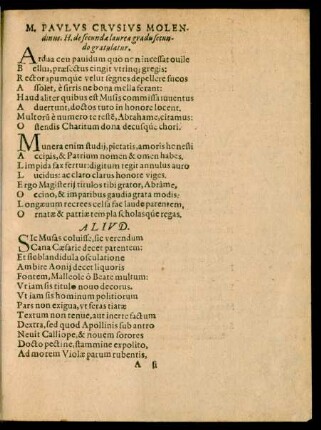 M. PAVLVS CRVSIVS MOLEN-
dinus. H. de secunda laurea gradu secun-
do gratulatur.
Ardua ceu pauidum quo ne incessat ouile
Bellua, præfectus cingit vtrinq; gregis;
Rectorapumque velut segnes depellere fucos
Assolet, è sirris ne bona mella ferant:
Haud aliter quibus est Musis commissa iuuentus
Aduertunt, doctos tuto in honore locent.
Multorũ è numero te testẽ, Abrahame, citamus:
Ostendis Charitum dona decusq́ue chori.
Munera enim studij, pietatis, amoris honesti
Accipis, & Patrium nomen & omen habes.
Limpida fax fertur: digitum tegit annulus auro
Lucidus: ac claro clarus honore viges.
Ergo Magisterij titulos tibi grator, Abrâme,
Oecino, & imparibus gaudia grata modis:
Longæuum recrees celsa fac laude parentem,
Ornatæ & patriæ templa scholasque regas.
ALIVD.
SIc Musas coluisse, sic verendum
Scana Cæsarie decet parentem:
Et sic blandidula osculatione
Ambire Aonij decet liquoris
Fontem, Malleole ô Beate multum:
Vt iam sis titulo nouo decorus.
Vt iam sis hominum politiorum
Pars non exigua, vt feras tiaræ
Textum non tenue, aut inerte factum
Dextra, sed quod Apollinis sub antro
Neuit Calliope, & nouem sorores
Docto pectine, stammine expolito,
Ad morem Violæ parum rubentis,
A ij